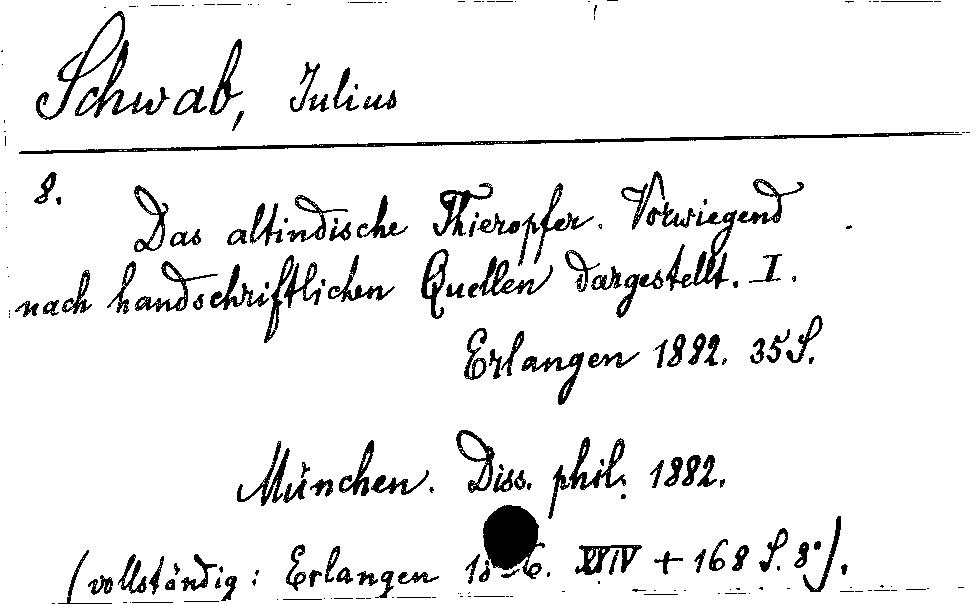 Schwab, Julius
8.
Das altindische Thieropfer. Vorwiegend
nach handschriftlichen Quellen dargestellt. I.
Erlangen 1882. 35 S.
München. Diss. phil. 1882.
(vollständig: Erlangen + 168 S. 8°).